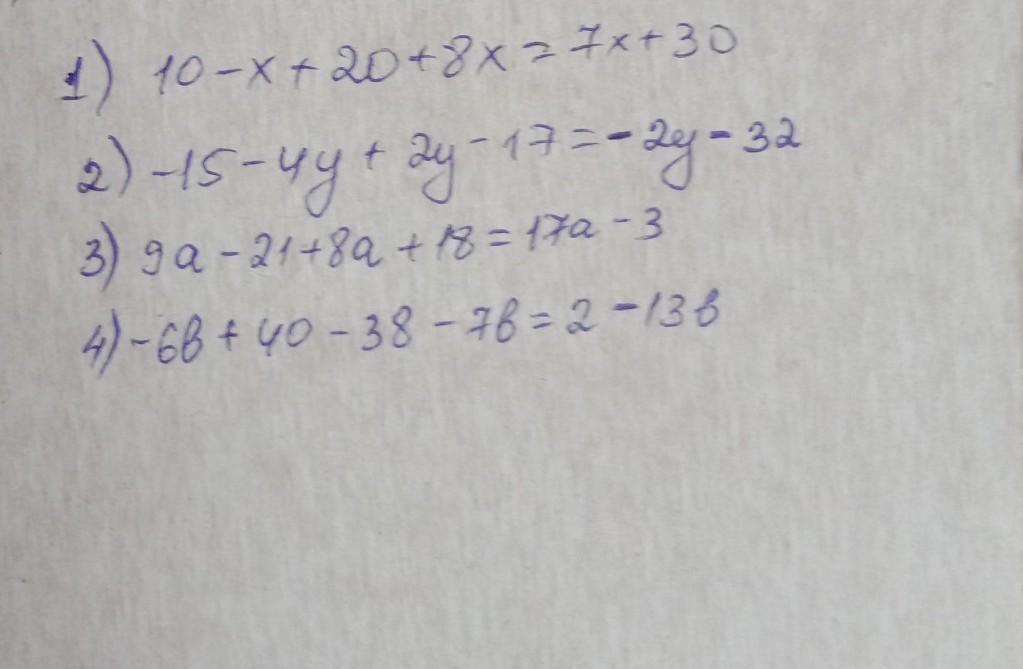 1) 10-x+20+8x=7x+30
2) -15-4y+2y-17=-2y-32
3) 9a-21+8a+18=17a-3
4) -6b+40-38-7b=2-13b